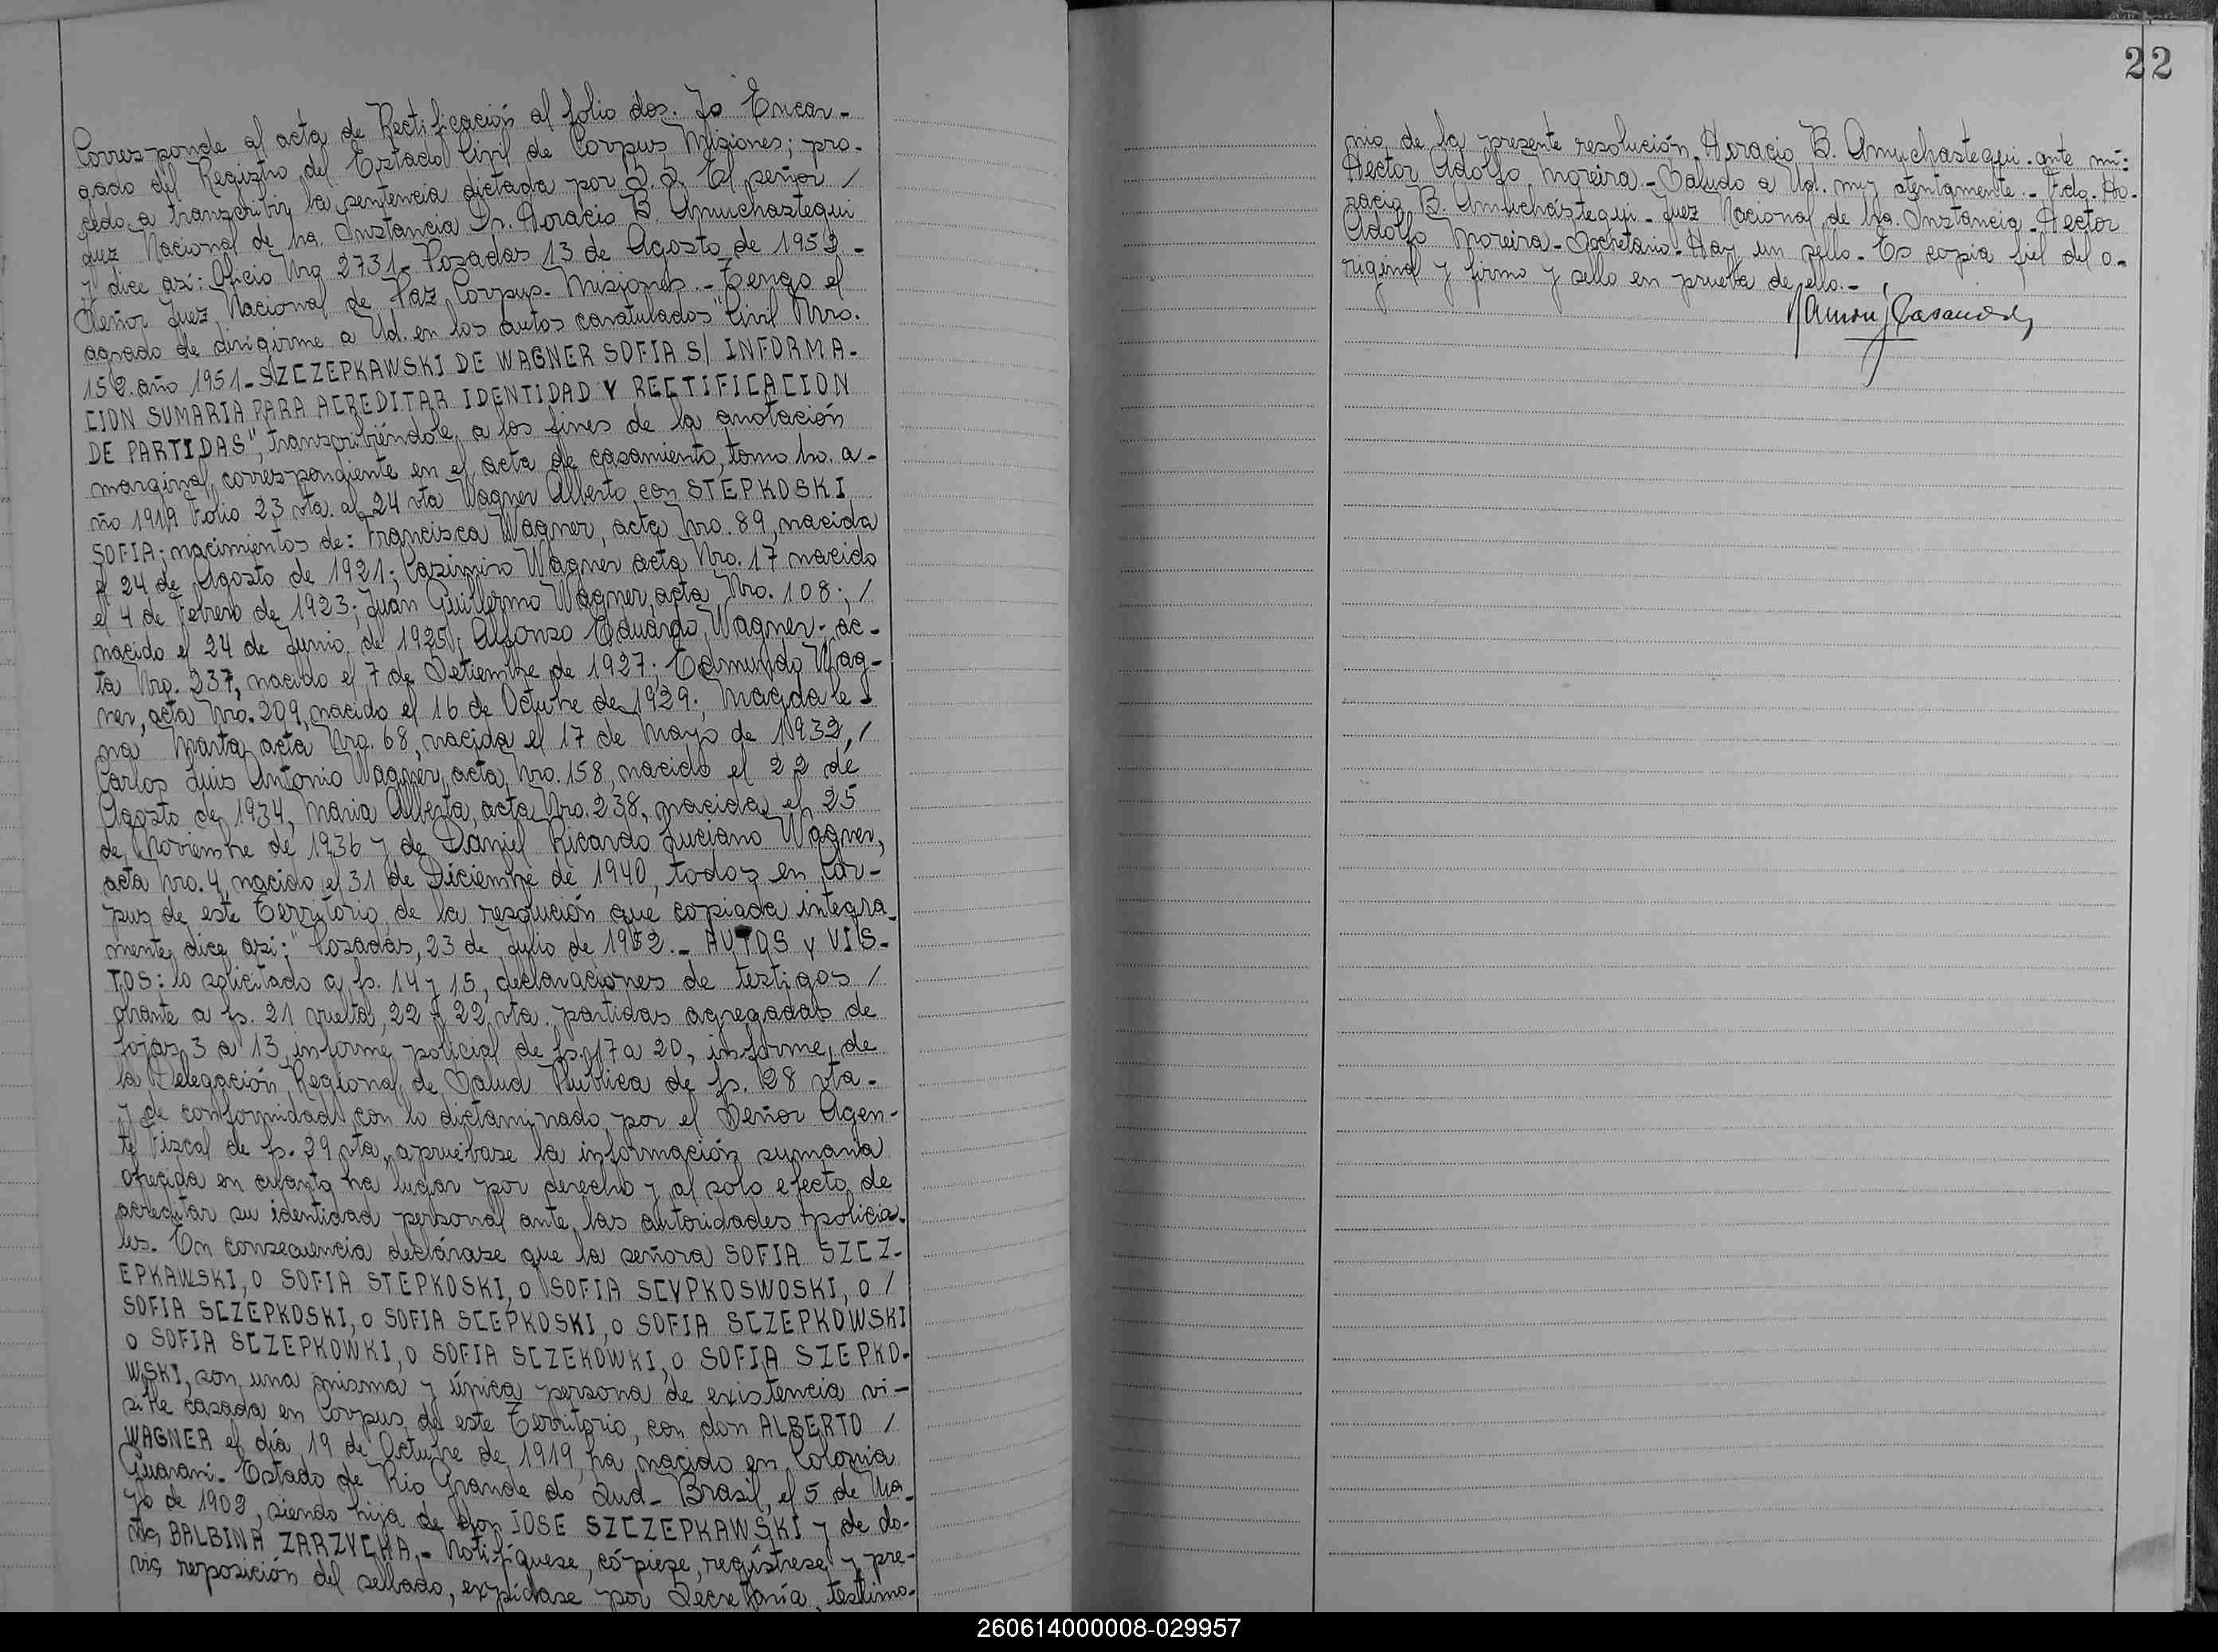 Corresponde al acta de Rectificación al folio dos. Yo Encar-
gado del Registro del Estado Civil de Corpus Misiones; pro-
cedo a transcribir la sentencia dictada por S.S. El señor /
Juez Nacional de 1ra. Instancia Dr. Horacio B. Amuchastegui
y dice así: Oficio Nro 2731- Posadas 13 de Agosto de 1952 -
Señor Juez Nacional de Paz Corpus- Misiones.- Tengo el
agrado de dirigirme a Ud. en los autos caratulados "Civil Nro.
152. año 1951- SZCZEPKAWSKI DE WAGNER SOFIA S/ INFORMA-
CION SUMARIA PARA ACREDITAR IDENTIDAD Y RECTIFICACION
DE PARTIDAS", transcribiéndole, a los fines de la anotación
marginal correspondiente en el acta de casamiento, tomo 1ro. a-
ño 1919 Folio 23 vta. al 24 vta Wagner Alberto con STEPKOSKI
SOFIA; nacimientos de: Francisca Wagner, acta Nro. 89, nacida
el 24 de Agosto de 1921; Casimiro Wagner acta Nro. 17 nacido
el 4 de Febrero de 1923; Juan Guillermo Wagner, acta Nro. 108; /
nacido el 24 de Junio de 1925; Alfonso Eduardo Wagner, ac-
ta Nro. 237, nacido el 7 de Setiembre de 1927; Edmundo Wag-
ner, acta Nro. 209, nacido el 16 de Octubre de 1929; Magdale-
na Marta acta Nro. 68, nacida el 17 de Mayo de 1932, /
Carlos Luis Antonio Wagner, acta Nro. 158, nacido el 22 de
Agosto de 1934, Maria Alberta, acta Nro. 238, nacida el 25
de Noviembre de 1936 y de Daniel Ricardo Luciano Wagner,
acta Nro. 4, nacido el 31 de Diciembre de 1940, todos en Cor-
pus de este Territorio, de la resolución que copiada integra-
mente, dice así: "Posadas, 23 de Julio de 1952.- AUTOS y VIS-
TOS: lo solicitado a fs. 14 y 15, declaraciones de testigos /
obrante a fs. 21 vuelta, 22 y 22 vta. partidas agregadas de
fojas 3 a 13, informe policial de fs. 17 a 20, informe, de
la Delegación Regional de Salud Publica de fs. 28 vta-
y de conformidad con lo dictaminado por el Señor Agen-
te Fiscal de fs. 29 vta, apruébase la información sumaria
ofrecida en cuanto ha lugar por derecho y al solo efecto de
acreditar su identidad personal ante las autoridades policia-
les. En consecuencia declárase que la señora SOFIA SZCZ-
EPKAWSKI, o SOFIA STEPKOSKI, o SOFIA SCYPKOSWOSKI, o /
SOFIA SCZEPKOSKI, o SOFIA SCEPKOSKI, o SOFIA SCZEPKOWSKI
o SOFIA SCZEPKOWKI, o SOFIA SCZEKOWKI, o SOFIA SZEPKO-
WSKI, son una misma y única persona de existencia vi-
sible casada en Corpus, de este Territorio, con don ALBERTO /
WAGNER el día 19 de Octubre de 1919, ha nacido en Colonia
Guarani- Estado de Rio Grande do Sud- Brasil, el 5 de Ma-
yo de 1902, siendo hija de don JOSE SZCZEPKAWSKI y de do-
ña BALBINA ZARZYCKA.- Notifíquese, cópiese, regístrese y pre-
via reposición del sellado, expídase por Secretaría, testimo-
nio de la presente resolución. Horacio B. Amuchastegui- ante mí:
Hector Adolfo Moreira.- Saludo a Ud. muy atentamente.- Fdo. Ho-
racio B. Amuchástegui- Juez Nacional de 1ra. Instancia- Hector
Adolfo Moreira- Secretario- Hay un sello- Es copia fiel del o-
riginal y firmo y sello en prueba de ello.-
22
260614000008-029957